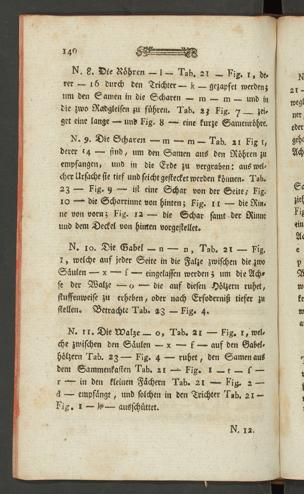 140
N. 8. Die Röhren — l — Tab. 21 — Fig. 1, de-
rer — 16 durch den Trichter — k — gezapfet werden;
um den Samen in die Scharen — m — m — und in
die zwo Radgleisen zu führen. Tab. 23 Fig. 7 — zei-
get eine lange — und Fig. 8 — eine kurze Samenröhre.
N. 9. Die Scharen — m — m — Tab. 21 Fig 1,
derer 14 — sind, um den Samen aus den Röhren zu
empfangen, und in die Erde zu vergraben: aus wel-
cher Ursache sie tief und seicht gestecket werden können. Tab.
23 — Fig. 9 — ist eine Schar von der Seite; Fig.
10 — die Scharrinne von hinten; Fig. 11 — die Rin-
ne von vorn; Fig. 12 — die Schar samt der Rinne
und dem Deckel von hinten vorgestellet.
N. 10. Die Gabel — n — n, Tab. 21 — Fig.
1, welche auf jeder Seite in die Falze zwischen die zwo
Säulen — x — f — eingelassen werden; um die Ach-
se der Walze — o — die auf diesen Hölzern ruhet,
stuffenweise zu erheben, oder nach Erforderniß tiefer zu
stellen. Betrachte Tab. 23 — Fig. 4.
N. 11. Die Walze — o, Tab. 21 — Fig. 1, wel-
che zwischen den Säulen — x — f — auf den Gabel-
hölzern Tab. 23 — Fig. 4 — ruhet, den Samen aus
dem Sammenkasten Tab. 21 — Fig. 1 — r — f —
r — in den kleinen Fächern Tab. 21 — Fig. 2 —
d — empfänge, und solchen in den Trichter Tab. 21 —
Fig. 1 — k — ausschüttet.
N. 12.